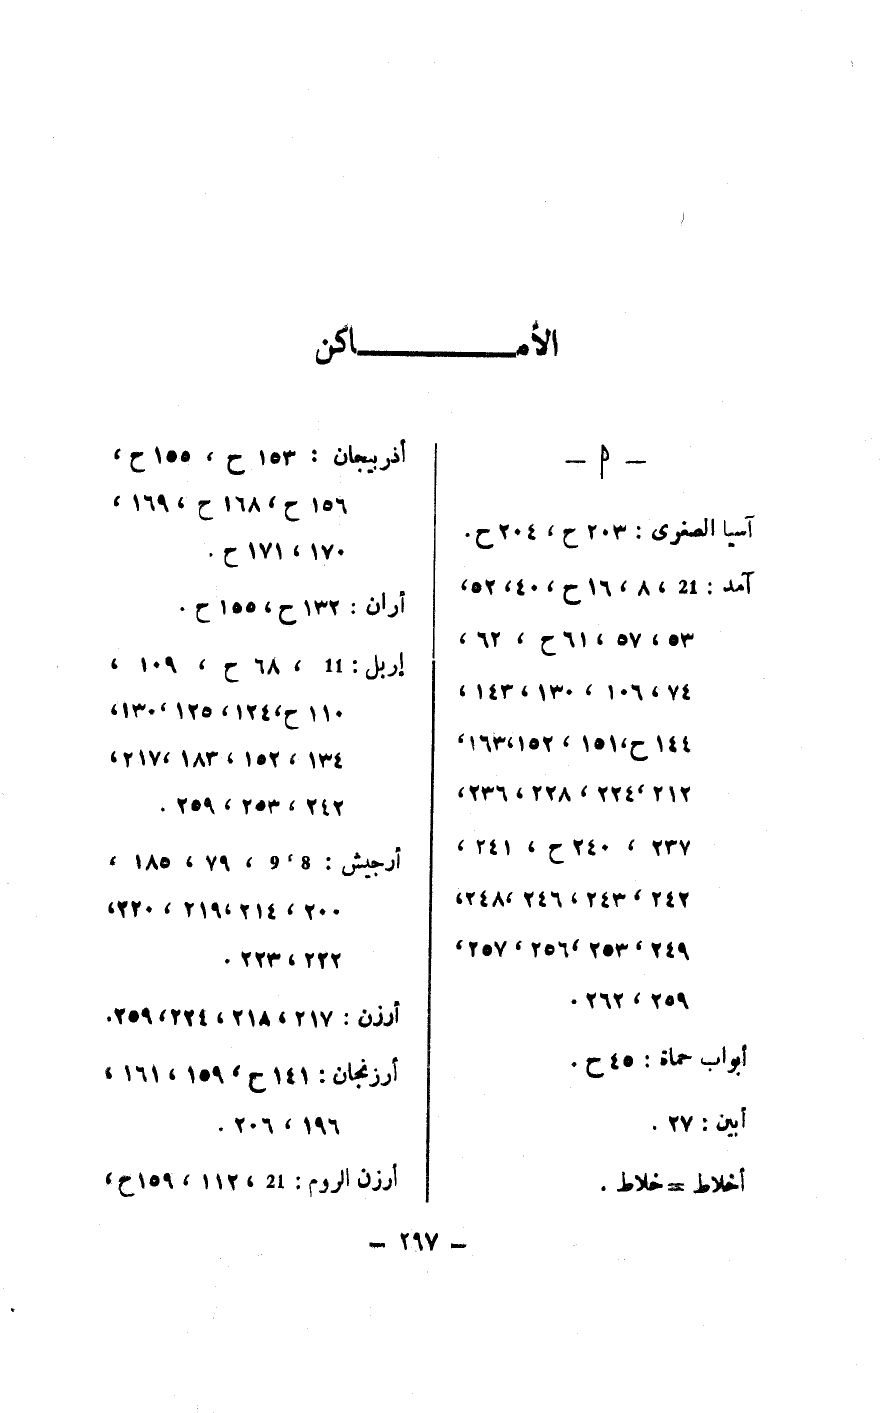 الأمـــــــــاكن
— أ —
آسيا الصغرى : ٢٠٣ ح ، ٢٠٤ ح.
آمد : 21 ، ٨ ، ١٦ ح ، ٤٠، ٥٢،
٥٣ ، ٥٧ ، ٦١ ح ، ٦٢ ،
٧٤ ، ١٠٦ ، ١٣٠ ، ١٤٣ ،
١٤٤ ح،١٥١ ، ١٥٢،١٦٣،
٢١٢ ،٢٢٤ ، ٢٢٨ ، ٢٣٦،
٢٣٧ ، ٢٤٠ ح ، ٢٤١ ،
٢٤٢ ، ٢٤٣ ، ٢٤٦ ،٢٤٨،
٢٤٩ ، ٢٥٣ ،٢٥٦ ، ٢٥٧،
٢٥٩ ، ٢٦٢ .
أبواب حماة : ٤٥ ح .
أبين : ٢٧ .
أخلاط = خلاط .
أذربيجان : ١٥٣ ح ، ١٥٥ ح ،
١٥٦ ح ، ١٦٨ ح ، ١٦٩ ،
١٧٠ ، ١٧١ ح .
أران : ١٣٢ ح ، ١٥٥ ح .
إربل : 11 ، ٦٨ ح ، ١٠٩ ،
١١٠ ح،١٢٤، ١٢٥ ،١٣٠،
١٣٤ ، ١٥٢ ، ١٨٣ ،٢١٧،
٢٤٢ ، ٢٥٣ ، ٢٥٩ .
أرجيش : 8 ، 9 ، ٧٩ ، ١٨٥ ،
٢٠٠ ، ٢١٤ ،٢١٩ ، ٢٢٠،
٢٢٢ ، ٢٢٣ .
أرزن : ٢١٧ ، ٢١٨ ، ٢٢٤ ،٢٥٩.
أرزنجان : ١٤١ ح ، ١٥٩ ، ١٦١ ،
١٩٦ ، ٢٠٦ .
أرزن الروم : 21 ، ١١٢ ، ١٥٩ ح ،
— ٢٩٧ —